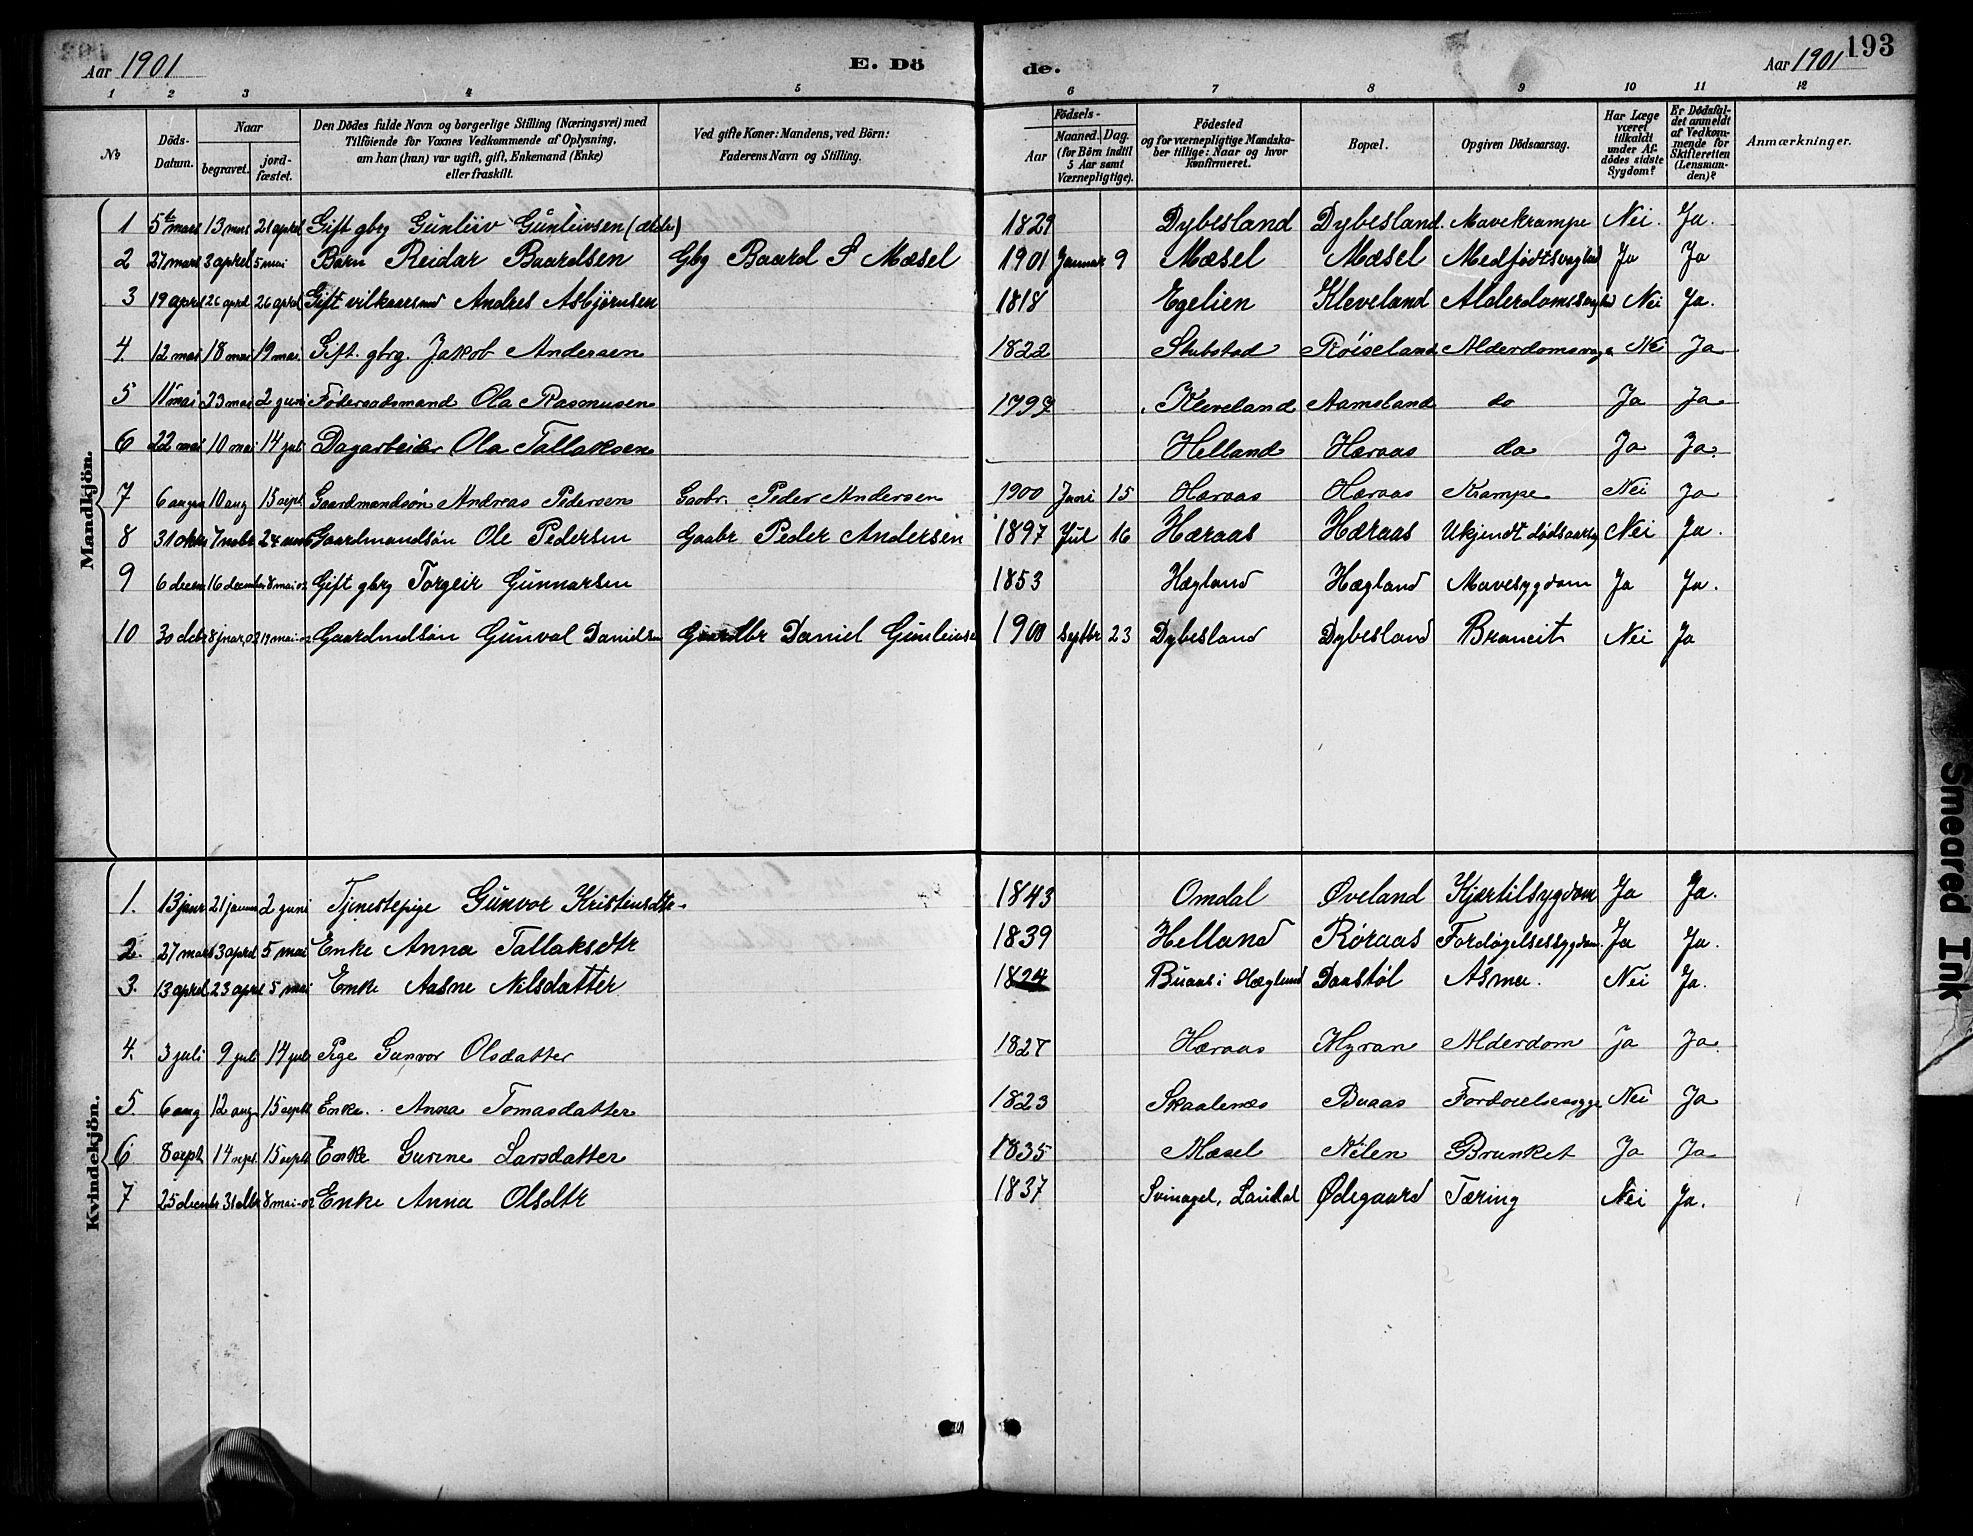 Aar 1901 E. Dö de. Aar 1901 193
1 2 3 4 5 6 7 8 9 10 11 12
No Döds-Datum. Naar begravet. jord-fæstet. Den Dödes fulde Navn og borgerlige Stilling (Næringsvei) med Tilföiende for Voxnes Vedkommende af Oplysning, om han (hun) var ugift, gift, Enkemand (Enke) eller fraskilt. Ved gifte Koner: Mandens, ved Börn: Faderens Navn og Stilling. Födsels- Aar Maaned. Dag. (for Börn indtil 5 Aar samt Værnepligtige). Födested og for værnepligtige Mandskaber tillige: Naar og hvor konfirmeret. Bopæl. Opgiven Dödsaarsag. Har Læge været tilkaldt under Afdödes sidste Sygdom? Er Dödsfaldet anmeldt af Vedkommende for Skifteretten (Lensmanden)? Anmærkninger.
Mandkjön.
1 5te mars 13 mars 21 april Gift gbrg Gunleiv Gunleivsen (ældre) 1829 Dybesland Dybesland. Mavekrampe Nei. Ja.
2 27 mars 3 april 5 mai Barn Reidar Baardsen Gbg Baard S Mæsel 1901 Januar 9 Mæsel Mæsel Medfødtsvaghed Ja Ja
3 19 april 26 april 26 april Gift vilkaarsmd Andres Asbjørnsen 1818 Egelien Kleveland Alderdomssvaghed Nei Ja.
4 12 mai 18 mai 19 mai. Gift. gbrg. Jakob Andersen 1822 Stubstad Røiseland Alderdomsvag Nei Ja
5 11 mai 23 mai 2 juni Føderaadsmand Ola Rasmusen 1797 Kleveland Aamsland do Ja Ja
6 22 mai 10 mai 14 juli Dagarbeider Ola Tallaksen Helland Hæraas do Ja Ja.
7 6 august 10 aug 15 sept. Gaardmandsøn Andreas Pedersen Gaabr. Peder Andersen 1900 Juni 15 Hæraas Hæraas Krampe Nei Ja
8 31 oktr 7 nobr 24 Gaardmandsøn Ole Pedersen Gaabr Peder Andersen 1897 Jul 16 Hæraas Hæraas Ukjendt dødsaarsg Nei Ja.
9 6 decem 16 december 8 mai-02 Gift gbrg Torgeir Gunnarsen 1853 Hægland Hægland Mavesygdom Ja Ja.
10 30 debr 8 jnar, 02 19 mai-02 Gaardmdsøn Gunval Danielsen Gaardbr Daniel Gunleivse 1900 Septbr 23 Dybesland Dybesland Broncit Nei Ja
Kvindekjön.
1. 13 janr 21 januar 2 juni Tjenestepige Gunvor Kristensdtr. 1843 Omdal Øveland Hjertilsygdom Ja Ja.
2. 27 mars 3 april 5 mai Enke Anna Tallaksdtr 1839 Helland Røraas Fordøgelsessygdom. Ja Ja.
3. 13 april 23 april 5 mai Enke Aasne Nilsdatter 1824 Buaas i Hægland Daastøl Asma. Nei Ja.
4. 3 juli 9 juli 14 juli Pige Gunvor Olsdatter 1827 Hæraas Myran Alderdom Ja Ja.
5. 6 aug 12 aug 15 septb Enke. Anna Tomasdatter 1823 Skaalenæs Buaas Fordoielsessyge Nei Ja
6. 8 sept. 14 sept. 15 septb Enke Gurine Larsdatter 1835 Mæsel Kilen Brunket Ja Ja
7 25 decembr 31 debr 8 mai-02 Enke Anna Olsdtr 1837 Svinagel, Laudal Ødegaard Tæring Nei Ja.
Smeared Ink